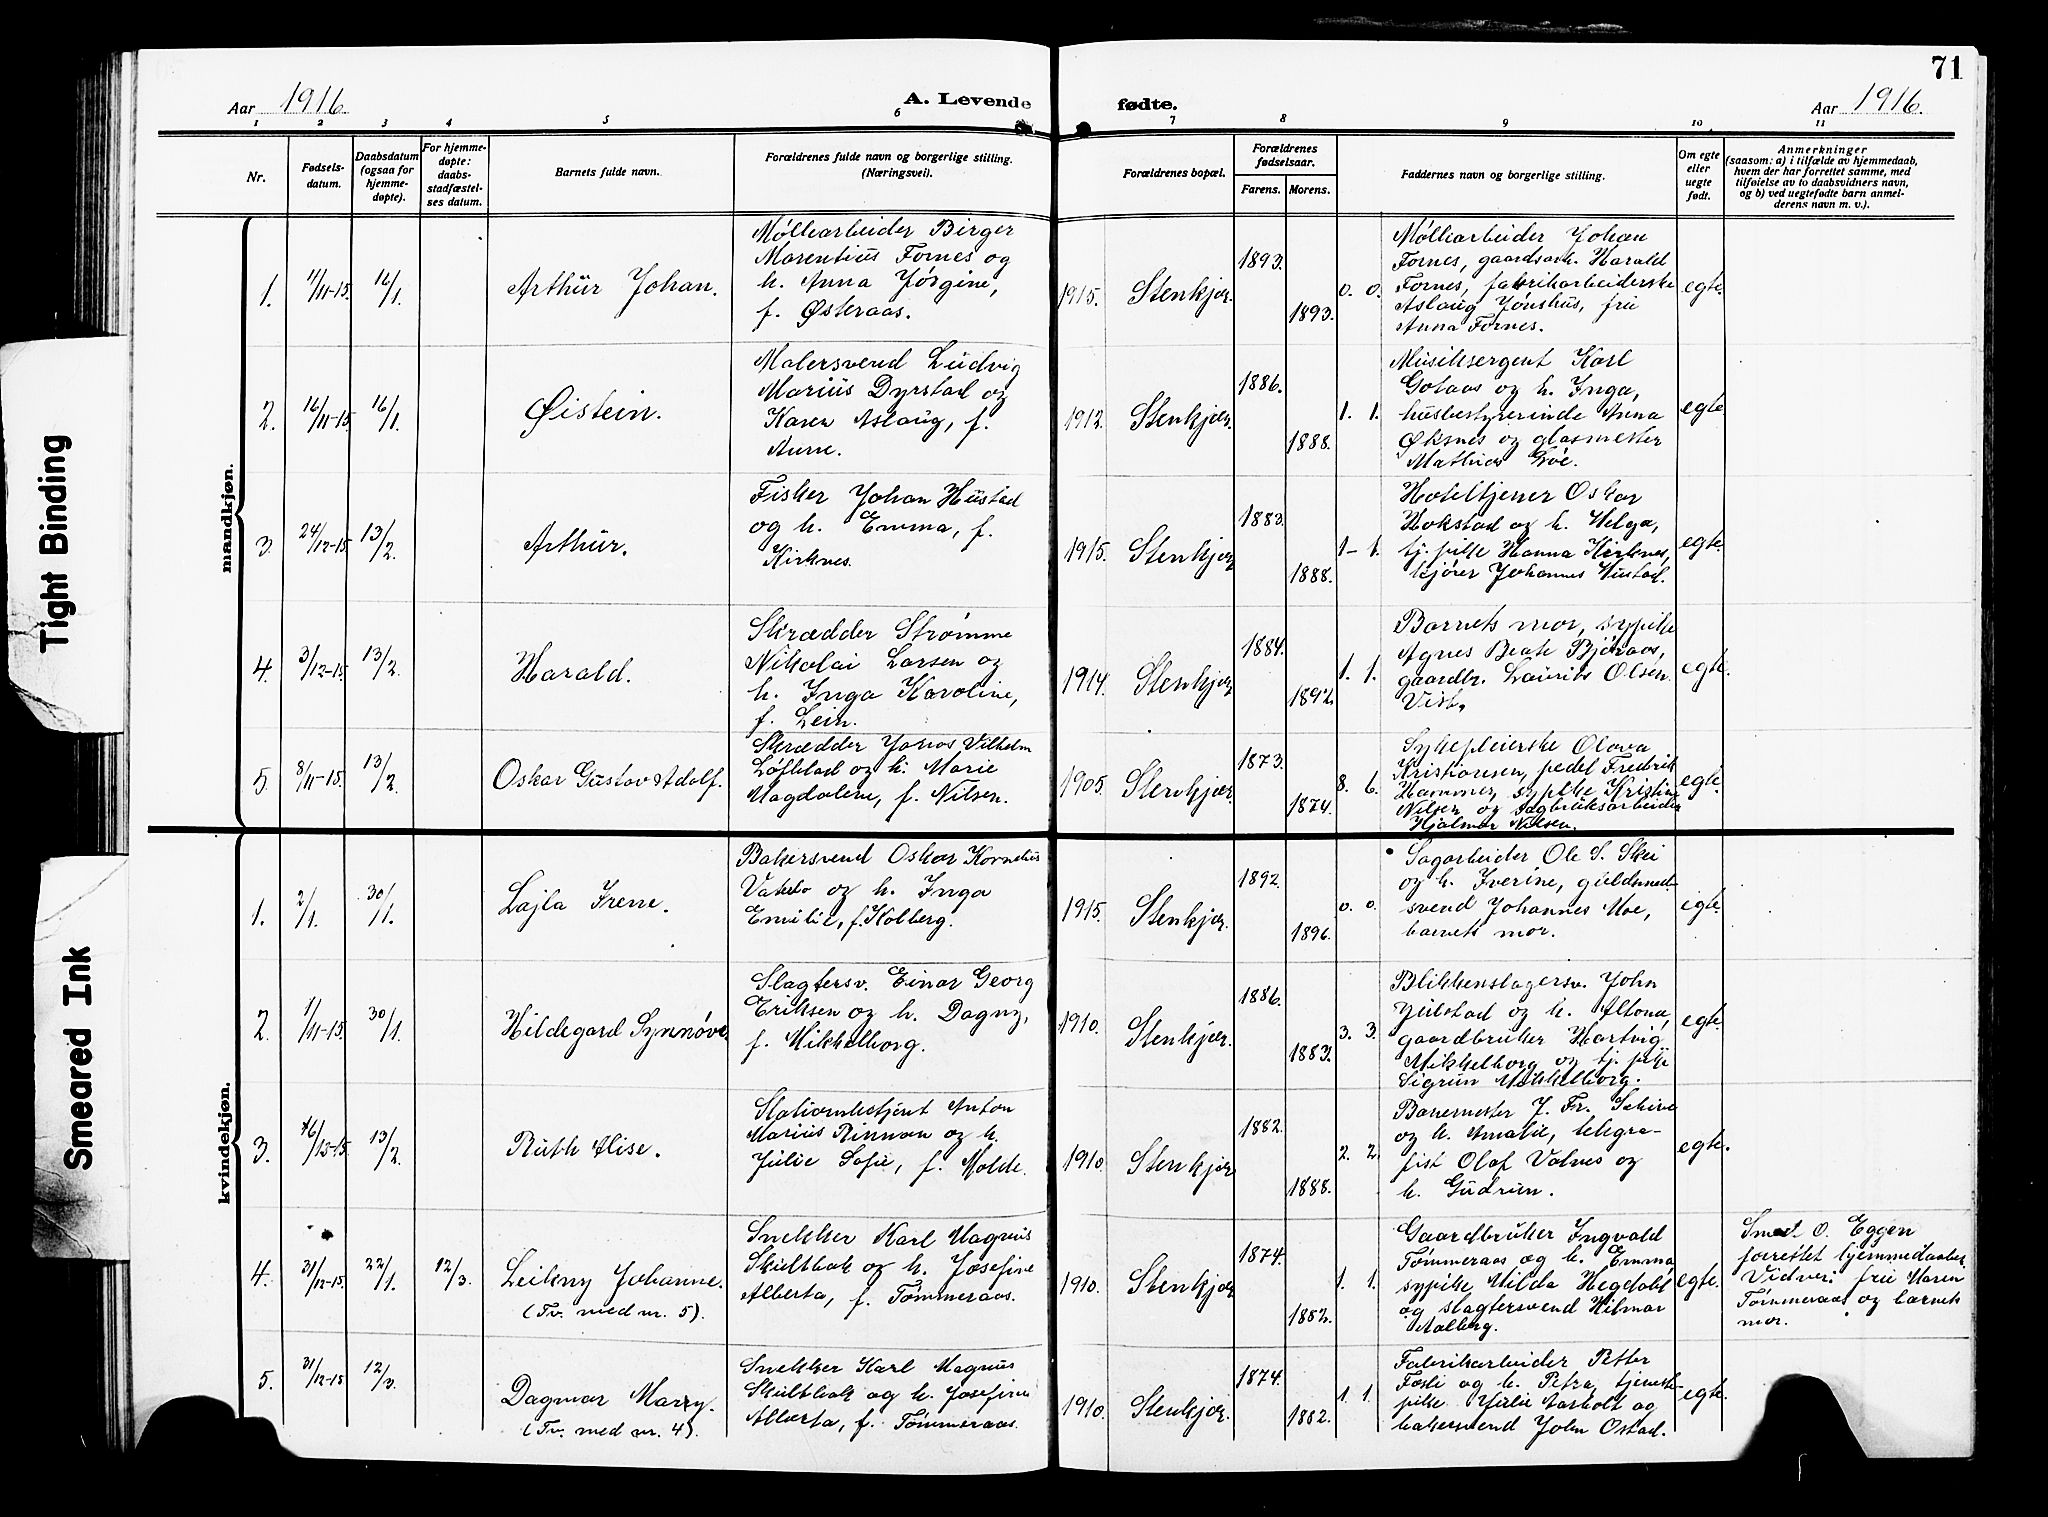 71
Aar 1916.
A. Levende
fødte.
Aar 1916.
1 2 3 4 5 6 7 8 9 10 11
Nr.
Fødsels-
datum.
Daabsdatum
(ogsaa for
hjemme-
døpte).
For hjemme-
døpte:
daabs-
stadfæstel-
ses datum.
Barnets fulde navn.
Forældrenes fulde navn og borgerlige stilling.
(Næringsvei).
Forældrenes bopæl.
Forældrenes
fødselsaar.
Farens. Morens.
Faddernes navn og borgerlige stilling.
Om egte
eller
uegte
født.
Anmerkninger
(saasom: a) i tilfælde av hjemmedaab,
hvem der har forrettet samme, med
tilføielse av to daabsvidners navn,
og b) ved uegtefødte barn anmel-
derens navn m. v.).
mandkjøn.
1. 11/11-15. 16/1. Arthur Johan.
Møllearbeider Birger
Marentius Fornes og
h. Anna Jørgine,
f. Østeraas.
1915. Stenkjær. 1893. 1893. 0. 0.
Møllearbeider Johan
Fornes, gaardsarb. Harald
Fornes, fabrikarbeiderske
Aslaug Jønshus, fru
Anna Fornes.
egte.
2. 16/11-15. 16/1. Øistein.
Malersvend Ludvig
Marius Dyrstad og
Karen Aslaug, f.
Aune.
1912. Stenkjær. 1886. 1888. 1. 1.
Musiksergent Karl
Golaas og h. Inga,
husbestyrerinde Anna
Øksnes og glasmester
Mathias Gröe.
egte.
3. 24/12-15. 13/2. Arthur.
Fisker Johan Hustad
og h. Emma, f.
Kirknes.
1915. Stenkjær 1883. 1888. 1- 1.
Hoteltjener Oskar
Hokstad og h. Helga,
tj. pike Hanna Kirknes,
kjører Johannes Hustad.
egte.
4. 3/12-15. 13/2. Harald.
Skrædder Strømme
Nikolai Larsen og
h. Inga Karoline,
f. Lein.
1914. Stenkjær 1884. 1892. 1. 1.
Barnets mor, sypike
Agnes Beate Bjøraas,
gaardbr. Laurits Olsen
Vist.
egte.
5. 8/11-15. 13/2. Oskar Gustav Adolf.
Skrædder Johas Vilhelm
Løfblad og h. Marie
Magdalene, f. Nilsen.
1905. Stenkjær. 1873. 1874. 8. 6.
Sykepleierske Olava
Kristiansen, pedel Fredrik
Hammer, sypike Kristine
Nilsen og sagbruksarbeider
Hjalmar Nilsen.
egte.
kvindekjøn.
1. 2/1. 30/1. Lajla Irene.
Bakersvend Oskar Kornelius
og h. Inga
Emilie, f. Holberg.
1915. Stenkjær. 1892. 1896. 0. 0.
Sagarbeider Ole S. Skei
og h. Iverine, guldsmed-
svend Johannes Moe,
barnets mor.
egte.
2. 1/11-15. 30/1. Hildegard Synnøve.
Slagtersv. Einar Georg
Eriksen og h. Dagny,
f. Mikkelborg.
1910. Stenkjær. 1886. 1883. 3. 3.
Blikkenslagersv. John
Julstad og h. Altona,
gaardbruker Hartvig
Mikkelborg og tj. pike
Sigrun Mikkelborg.
egte.
3. 16/12-15. 13/2. Ruth Alise.
Stationsbetjent Anton
Marius Rinnan og h.
Julie Sofie, f. Molde.
1910. Stenkjær 1882. 1888. 2. 2.
Banemester J. Fr. Schive
og h. Amalie, telegra-
fist Olaf Valnes og
h. Gudrun.
egte.
4. 31/12-15. 22/1. 12/3. Leikny Johanne.
(Tv. med nr. 5).
Snekker Karl Magnus
Skeltbak og h. Josefine
Alberta, f. Tømmeraas.
1910. Stenkjær 1874. 1882. 1. 1.
Gaardbruker Ingvald
Tømmeraas og h. Emma,
sypike Hilda Hegdahl
og slagtersvend Hilmar
Aalberg.
egte.
Smed O. Eggen
forrettet hjemmedaaben.
Vidner: frue Maren
Tømmeraas og barnets
mor.
5. 31/12-15 12/3. Dagmar Marry.
(Tv. med nr. 4).
Snekker Karl Magnus
Skeltbak og h. Josefine
Alberta, f. Tømmeraas.
1910. Stenkjær. 1874. 1882. 1. 1.
Fabrikarbeider Petter
Fosli og h. Petra, tjeneste-
pike Julie Aarholt og
bakersvend John Ostad.
egte.
Tight Binding
Smeared Ink